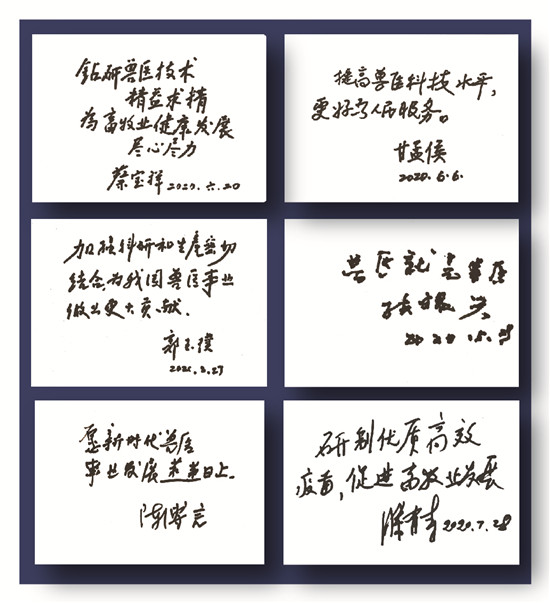 钻研兽医技术
精益求精
为畜牧业健康发展
尽心尽力
蔡宝祥 2020.六.20
提高兽医科技水平,
更好为人民服务。
甘孟侯
2020.6.6.
加强科研和生产密切
结合,为我国兽医事业
做出更大贡献.
郭玉璞
兽医就是
2020.5.28
愿新时代兽医
事业发展蒸蒸日上。
陈溥言
研制优质高效
疫苗,促进畜牧业发展
2020.7.28